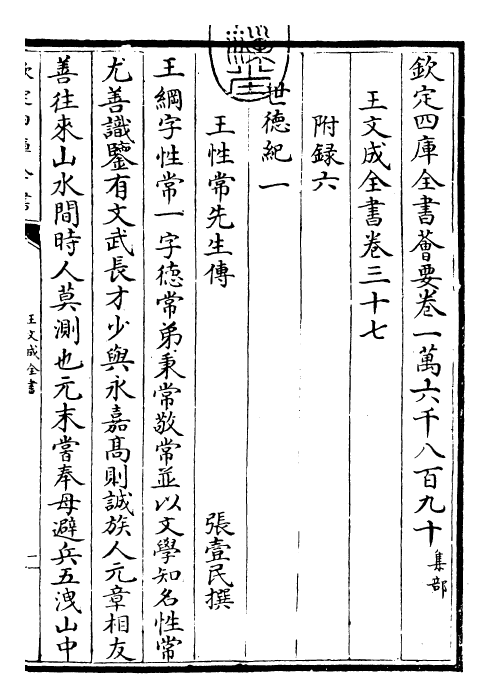 欽定四庫全書薈要卷一萬六千八百九十 集部
王文成全書卷三十七
附録六
世德紀一
王性常先生傳 張壹民撰
王綱字性常一字德常弟秉常敬常並以文學知名性常
尤善識鑒有文武長才少與永嘉髙則誠族人元章相友
善往來山水間時人莫測也元末嘗奉母避兵五洩山中
欽定四庫全書
王文成全書
一